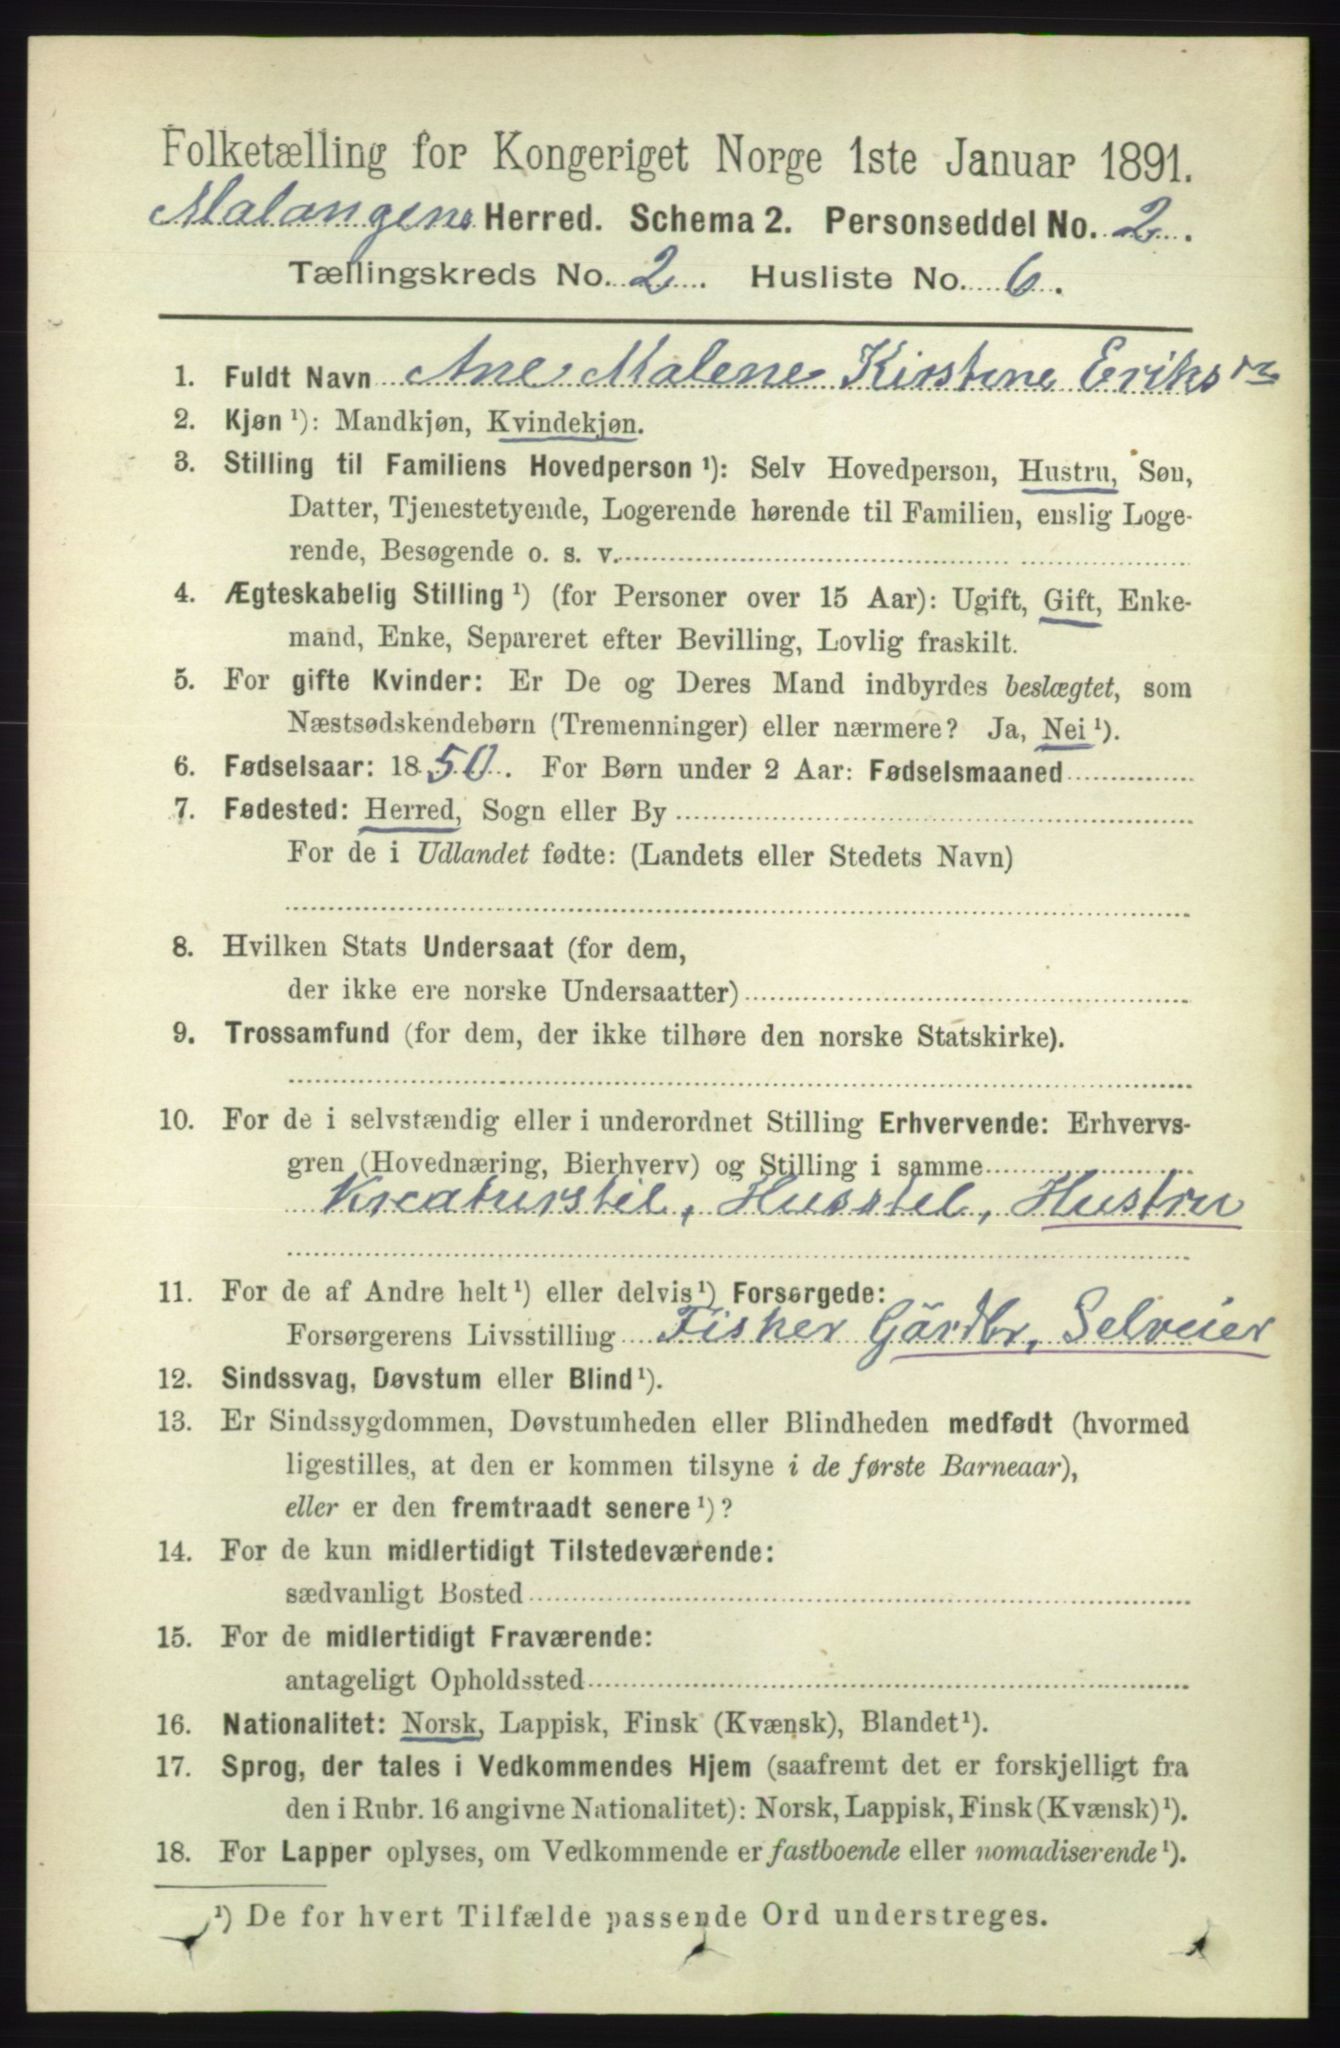 Folketælling for Kongeriget Norge 1ste Januar 1891.
Malangens Herred. Schema 2. Personseddel No. 2.
Tællingskreds No. 2. Husliste No. 6.
1. Fuldt Navn Ane Malene Kirstine Eriks
2. Kjøn ¹): Mandkjøn, Kvindekjøn.
3. Stilling til Familiens Hovedperson ¹): Selv Hovedperson, Hustru, Søn,
Datter, Tjenestetyende, Logerende hørende til Familien, enslig Loge-
rende, Besøgende o. s. v.
4. Ægteskabelig Stilling ¹) (for Personer over 15 Aar): Ugift, Gift, Enke-
mand, Enke, Separeret efter Bevilling, Lovlig fraskilt.
5. For gifte Kvinder: Er De og Deres Mand indbyrdes beslægtet, som
Næstsødskendebørn (Tremenninger) eller nærmere? Ja, Nei ¹).
6. Fødselsaar: 1850. For Børn under 2 Aar: Fødselsmaaned
7. Fødested: Herred, Sogn eller By
For de i Udlandet fødte: (Landets eller Stedets Navn)
8. Hvilken Stats Undersaat (for dem,
der ikke ere norske Undersaatter)
9. Trossamfund (for dem, der ikke tilhøre den norske Statskirke).
10. For de i selvstændig eller i underordnet Stilling Erhvervende: Erhvervs-
gren (Hovednæring, Bierhverv) og Stilling i samme
Kreaturstel, Husstel, Hustru
11. For de af Andre helt ¹) eller delvis ¹) Forsørgede:
Forsørgerens Livsstilling Fisker Gårdbr, Selveier
12. Sindssvag, Døvstum eller Blind ¹).
13. Er Sindssygdommen, Døvstumheden eller Blindheden medfødt (hvormed
ligestilles, at den er kommen tilsyne i de første Barneaar),
eller er den fremtraadt senere ¹)?
14. For de kun midlertidigt Tilstedeværende:
sædvanligt Bosted
15. For de midlertidigt Fraværende:
antageligt Opholdssted
16. Nationalitet: Norsk, Lappisk, Finsk (Kvænsk), Blandet ¹).
17. Sprog, der tales i Vedkommendes Hjem (saafremt det er forskjelligt fra
den i Rubr. 16 angivne Nationalitet): Norsk, Lappisk, Finsk (Kvænsk) ¹).
18. For Lapper oplyses, om Vedkommende er fastboende eller nomadiserende ¹).
¹) De for hvert Tilfælde passende Ord understreges.